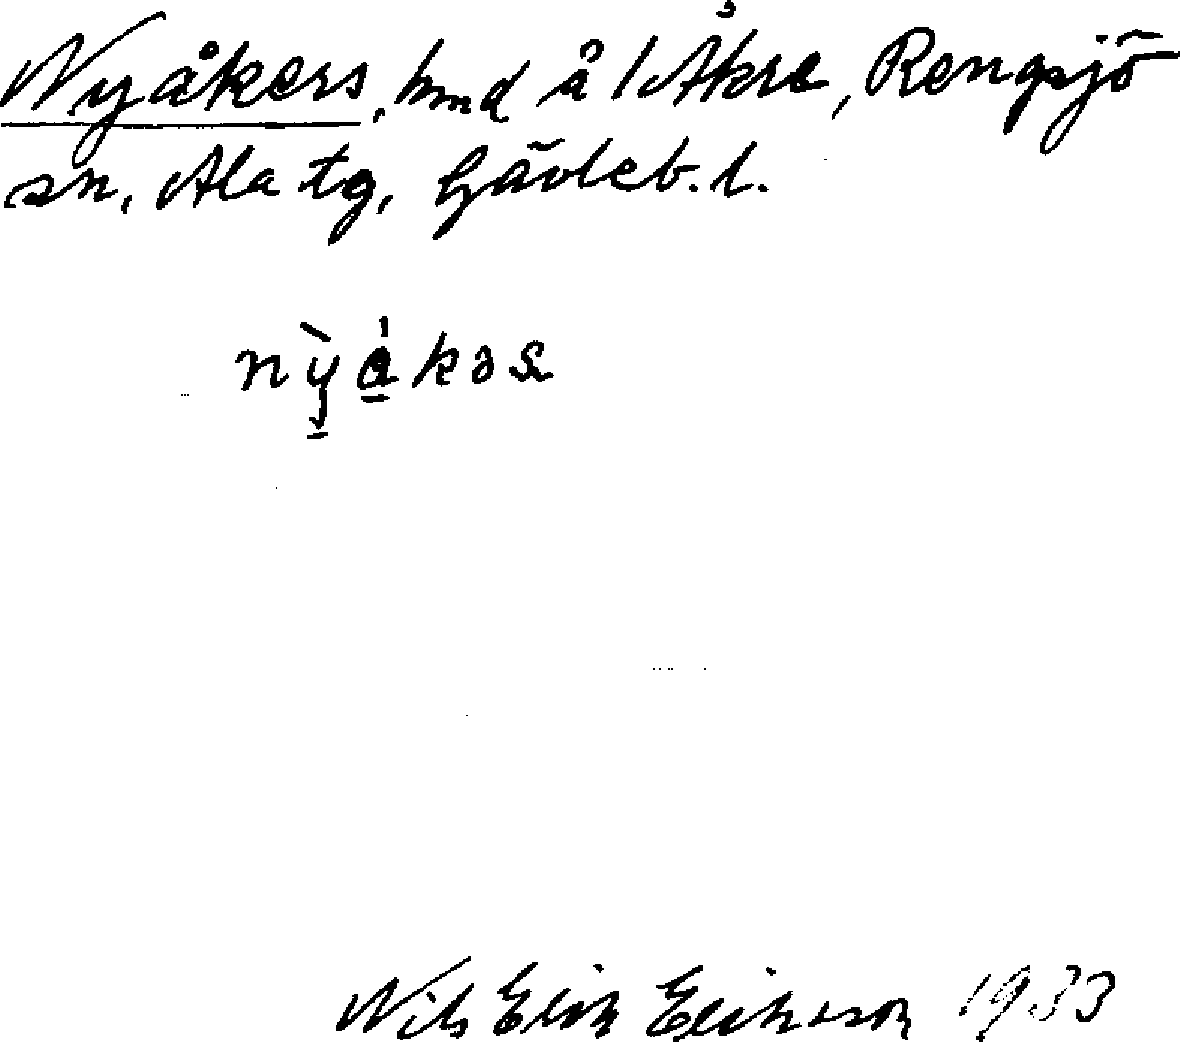 Nyåkers, hmd å 1 Åkre, Rengsjö
sn, Ala tg, Gävleb. l.
nỳákəs
Nils Erik Eriksson 1933